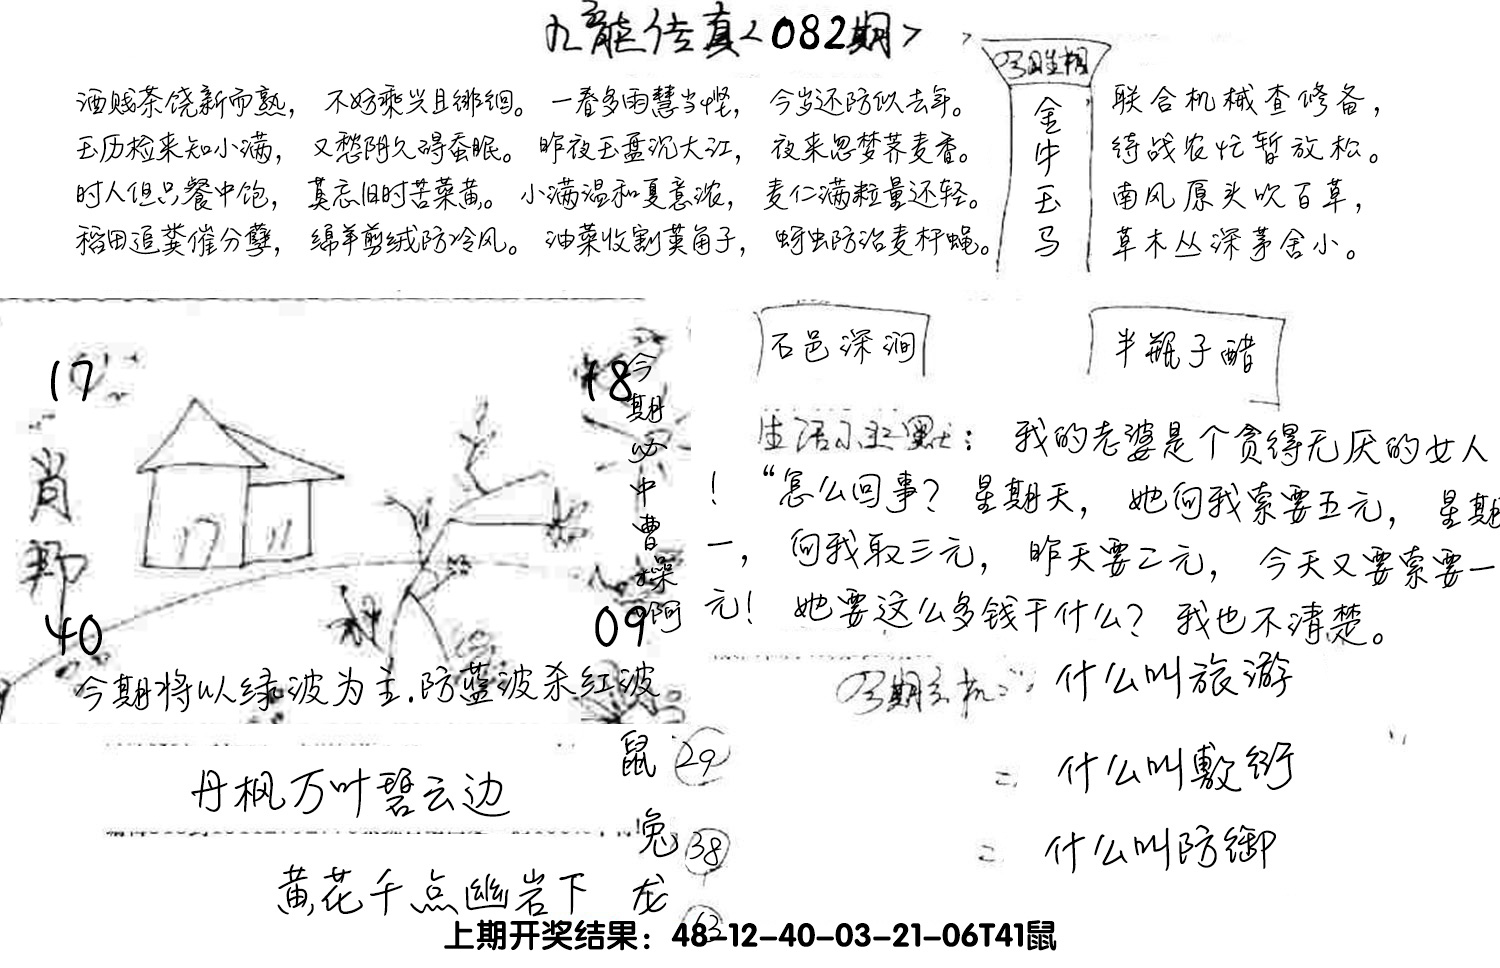 九龍传真<082期>
酒贱茶饶新而熟，不妨乘兴且徘徊。一春多雨慧当悭，今岁还防似去年。
玉历检来知小满，又愁阴久碍蚕眠。昨夜玉盘沉大江，夜来忽梦荞麦香。
时人但只餐中饱，莫忘旧时苦菜黄。小满温和夏意浓，麦仁满粒量还轻。
稻田追粪催分孽，绵羊剪绒防冷风。油菜收割荚角子，蚜虫防治麦秆蝇。
金牛玉马
联合机械查修备，
待战农忙暂放松。
南风原头吹百草，
草木丛深茅舍小。
17
18
肖
40
09
今期必中曹操阿
今期将以绿波为主.防蓝波杀红波
石邑深涧
半瓶子醋
生活小幽默：我的老婆是个贪得无厌的女人
！“怎么回事？星期天，她向我索要五元，星期
一，向我取三元，昨天要二元，今天又要索要一
元！她要这么多钱干什么？我也不清楚。
什么叫旅游
二 什么叫敷衍
二 什么叫防御
丹枫万叶碧云边
黄花千点幽岩下
鼠 29
兔 38
龙 63
上期开奖结果：48-12-40-03-21-06T41鼠